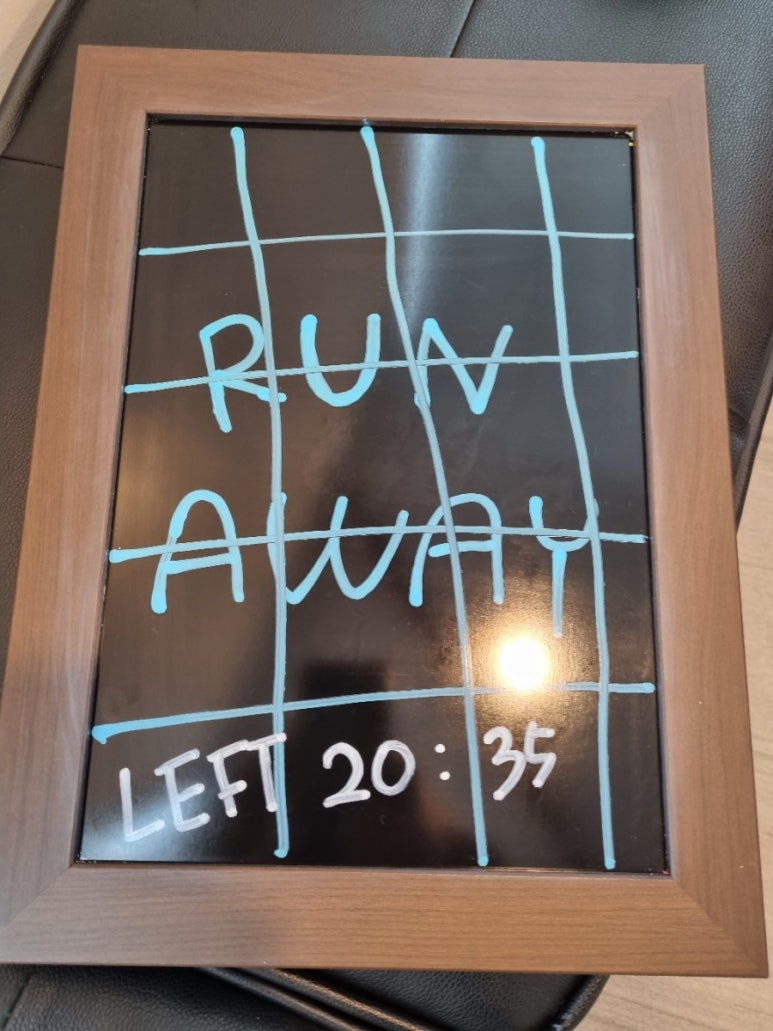 RUN
AWAY
LEFT 20:35